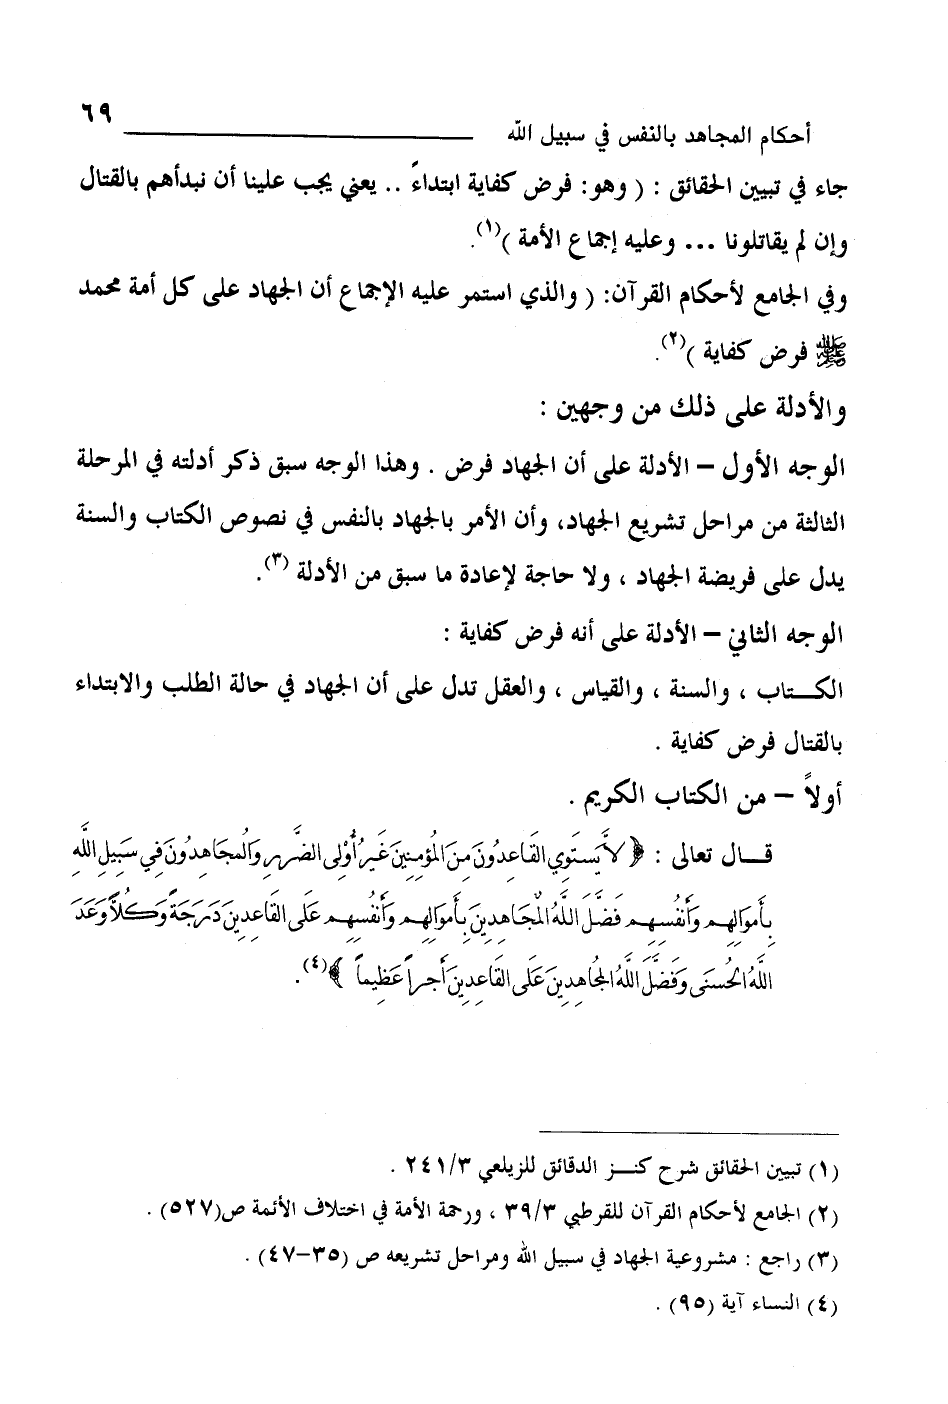 ٦٩
أحكام المجاهد بالنفس في سبيل الله
جاء في تبيين الحقائق : ( وهو: فرض كفاية ابتداءً .. يعني يجب علينا أن نبدأهم بالقتال
وإن لم يقاتلونا ... وعليه إجماع الأمة )(١).
وفي الجامع لأحكام القرآن: ( والذي استمر عليه الإجماع أن الجهاد على كل أمة محمد
ﷺ فرض كفاية )(٢).
والأدلة على ذلك من وجهين :
الوجه الأول – الأدلة على أن الجهاد فرض . وهذا الوجه سبق ذكر أدلته في المرحلة
الثالثة من مراحل تشريع الجهاد، وأن الأمر بالجهاد بالنفس في نصوص الكتاب والسنة
يدل على فريضة الجهاد ، ولا حاجة لإعادة ما سبق من الأدلة (٣).
الوجه الثاني – الأدلة على أنه فرض كفاية :
الكـــتاب ، والسنة ، والقياس ، والعقل تدل على أن الجهاد في حالة الطلب والابتداء
بالقتال فرض كفاية .
أولاً – من الكتاب الكريم .
قـــال تعالى : ﴿ لاَّ يَسْتَوِي القَاعِدُونَ مِنَ المُؤْمِنِينَ غَيْرُ أُوْلِي الضَّرَرِ وَالْمُجَاهِدُونَ فِي سَبِيلِ اللَّهِ
بِأَمْوَالِهِمْ وَأَنفُسِهِمْ فَضَّلَ اللَّهُ الْمُجَاهِدِينَ بِأَمْوَالِهِمْ وَأَنفُسِهِمْ عَلَى القَاعِدِينَ دَرَجَةً وَكُلاًّ وَعَدَ
اللَّهُ الحُسْنَى وَفَضَّلَ اللَّهُ المُجَاهِدِينَ عَلَى القَاعِدِينَ أَجْراً عَظِيماً ﴾(٤).
(١) تبيين الحقائق شرح كنـــز الدقائق للزيلعي ٢٤١/٣ .
(٢) الجامع لأحكام القرآن للقرطبي ٣٩/٣ ، ورحمة الأمة في اختلاف الأئمة ص(٥٢٧) .
(٣) راجع : مشروعية الجهاد في سبيل الله ومراحل تشريعه ص (٣٥–٤٧) .
(٤) النساء آية (٩٥) .